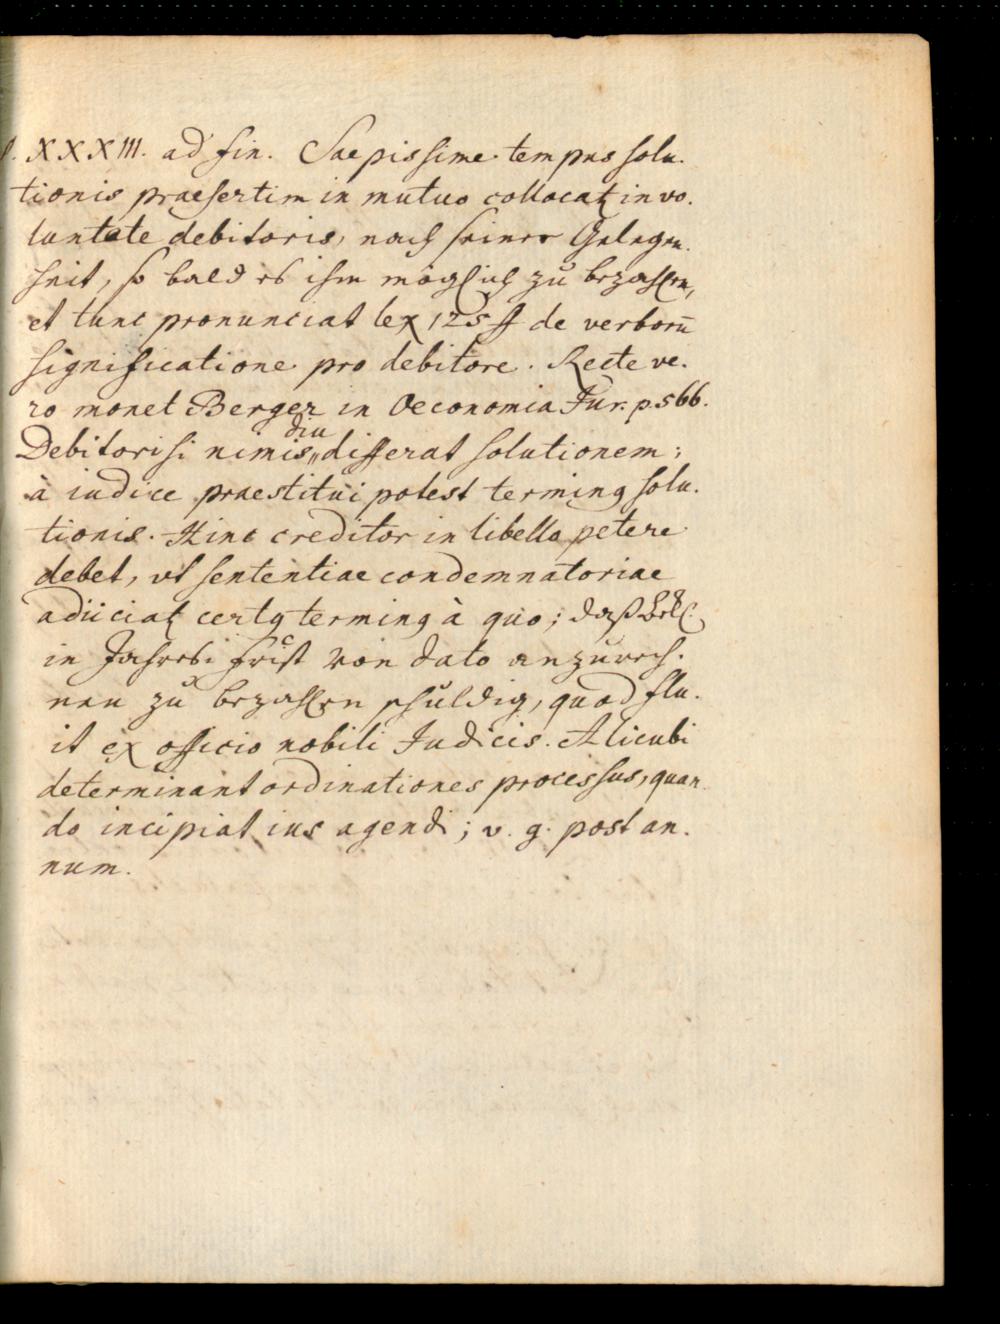 §. XXXIII. ad fin. Saepissime tempus solu-
tionis praesertim in mutuo collocatur in vo-
luntate debitoris, nach seiner Gelegen-
heit, so bald es ihm möglich zu bezahlen,
et tunc pronunciat lex 125 ff de verborū
significatione pro debitore. Recte ve-
ro monet Berger in Oeconomia Jur. p. 566.
diu
Debitori si nimis differat solutionem;
à iudice praestitui potest terminus solu-
tionis. Hinc creditor in libello petere
debet, vt sententiae condemnatoriae
adiiciatur certus terminus à quo; daß Bekl.
in Jahres Frist von dato anzurech-
nen zu bezahlen schuldig, quod flu-
it ex officio nobili Judicis. Alicubi
determinant ordinationes processus, quan-
do incipiat ius agendi; v. g. post an-
num.